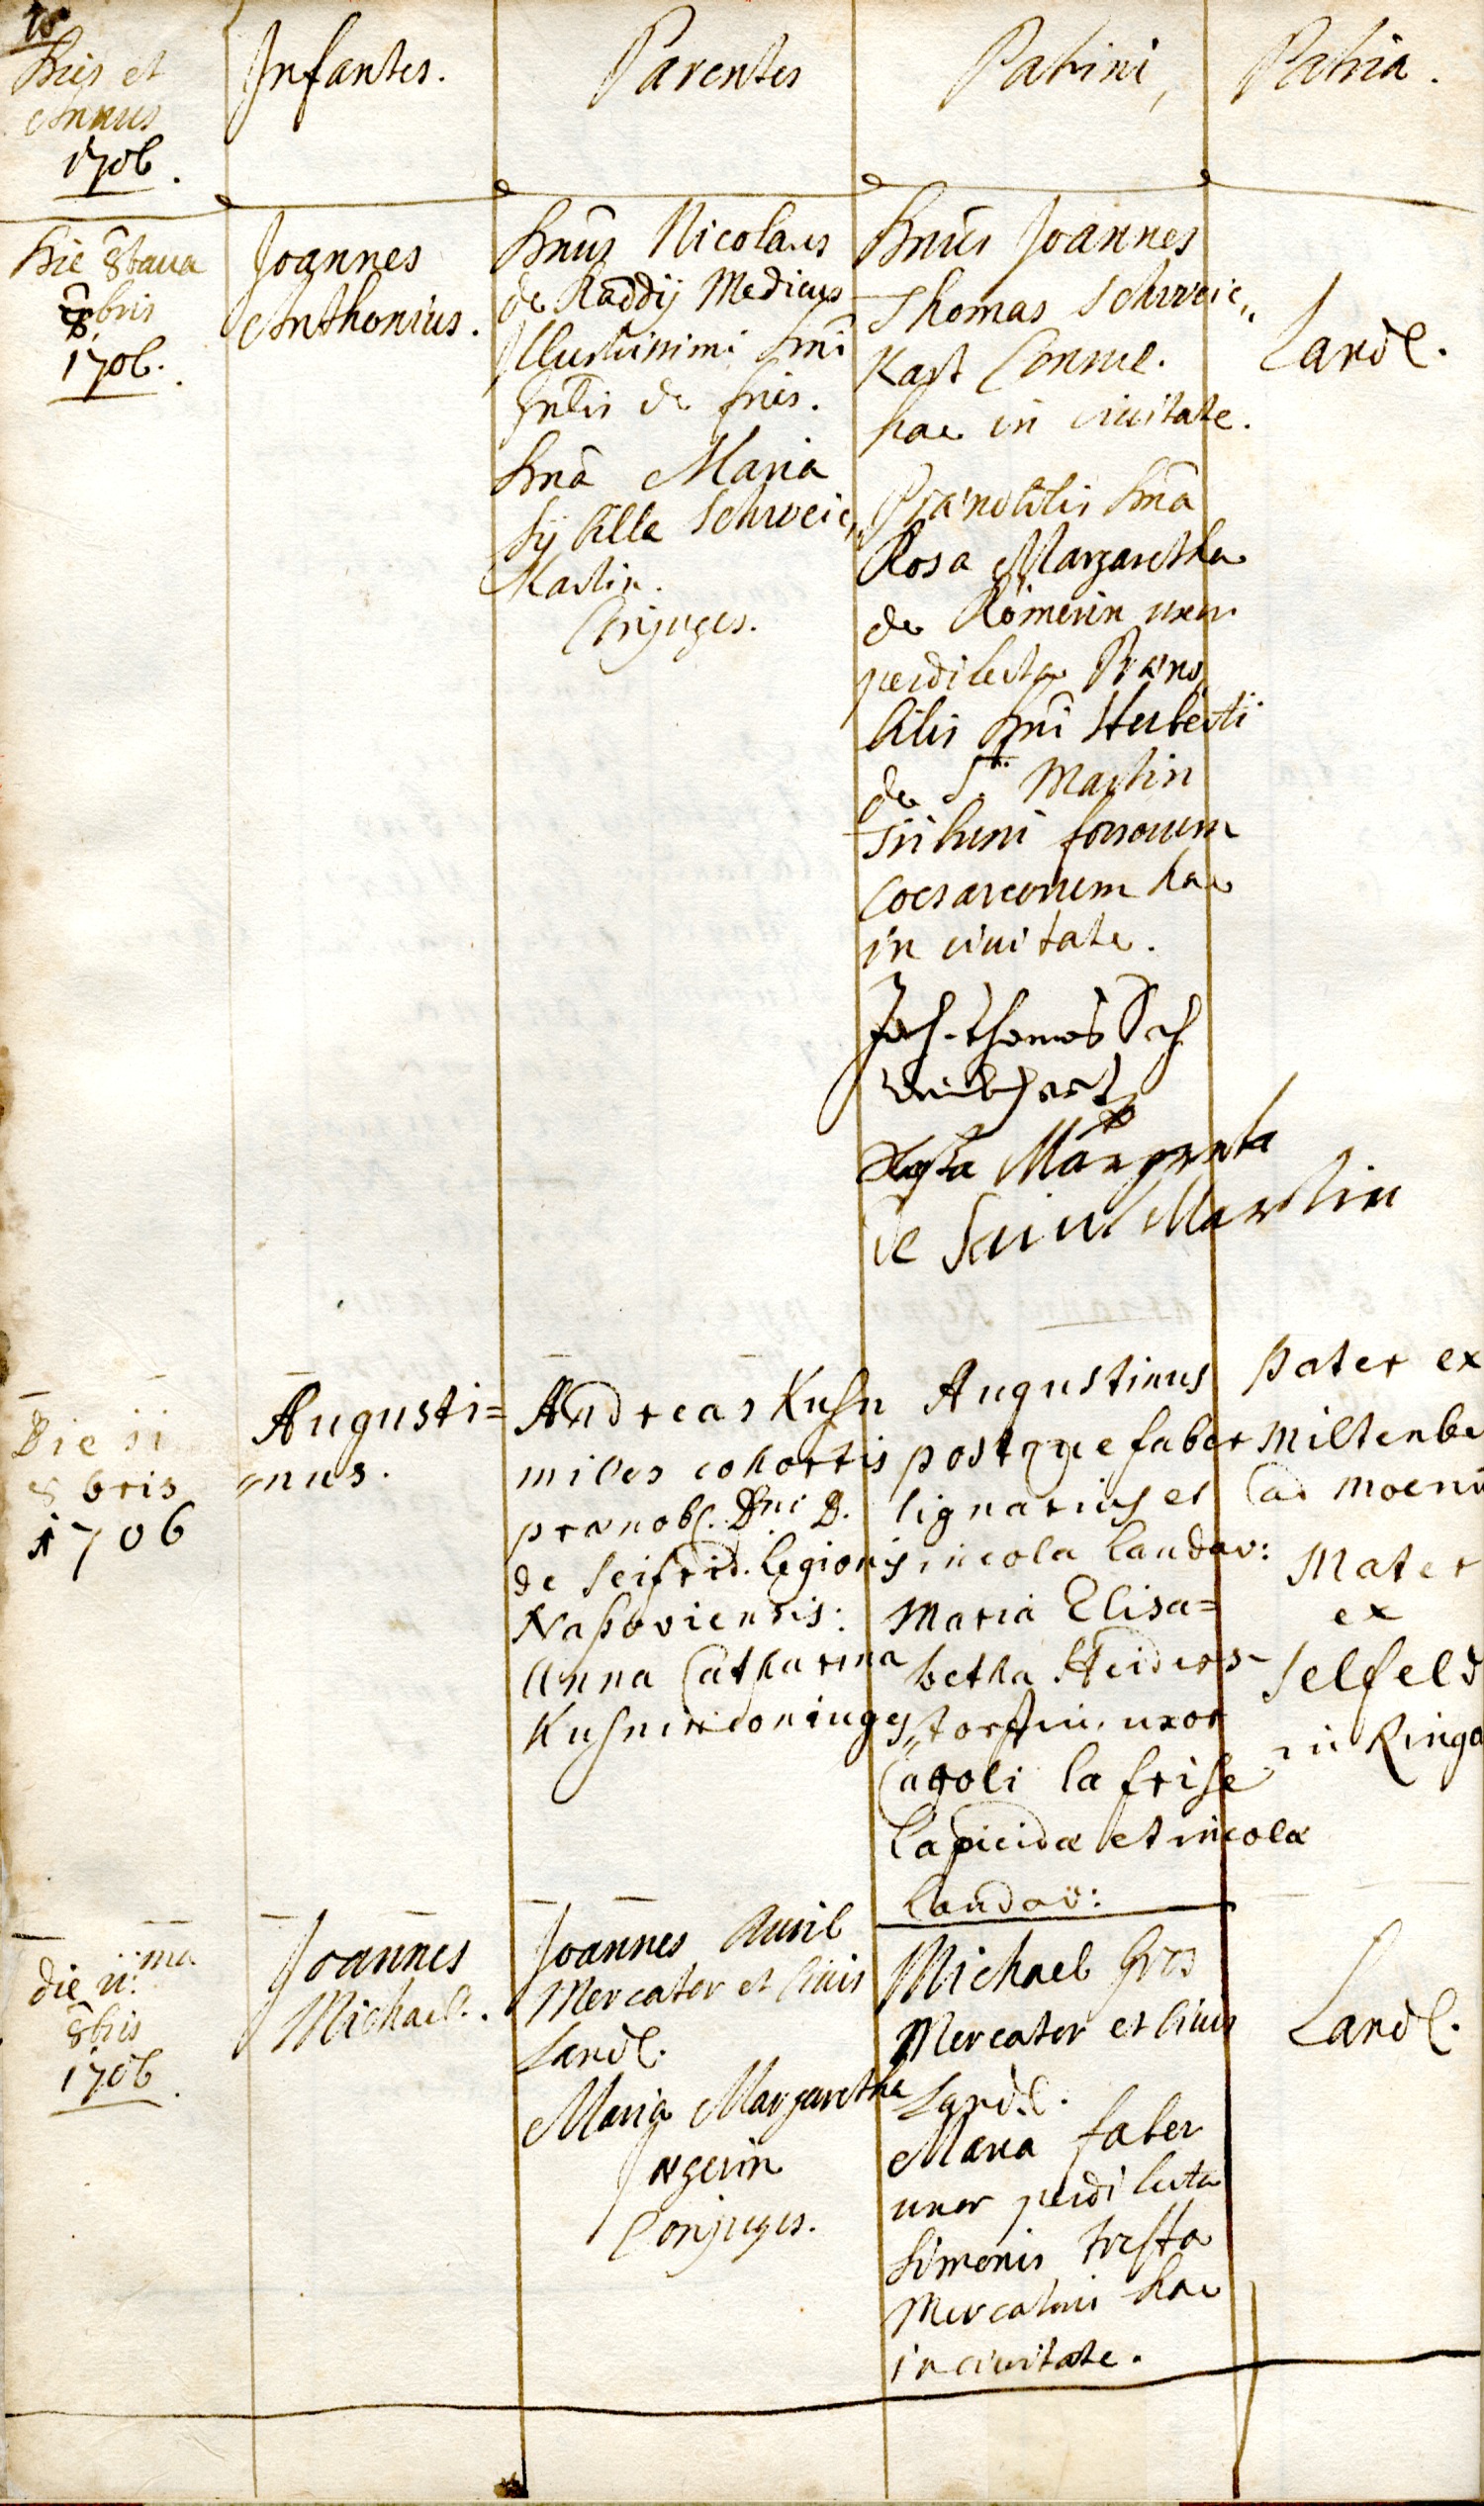 18
Dies et
Annus
1706.
Infantes.
Parentes
Patrini,
Patria.
Die 8taua
8bris
1706.
Joannes
Anthonius.
Dnûs Nicolaus
de Raddÿ Medicus
Illustrissimi Dni
de fries.
Dnâ Maria
Sÿbilla Schweic„
Kartin.
Conjuges.
Dnûs Joannes
Thomas Schweic„
Kart Consul.
hac in ciuitate.
Prænobilis Dnâ
Rosa Margaretha
de Römerin uxor
perdilecta Præno
bilis Dni Huberti
de St. Martin
Tribuni
Coesareorum hac
in ciuitate.
Joh. Thomas Sch
weickhart
Rosa Margreta
de Saint Martin
Landl.
Die 11
8bris
1706
Augusti=
„nus.
Andreas Kuhn
miles cohortis
prænobl. Dni D.
de Seifrid. legionis
Naßoviensis:
Anna Catharina
Kuhnin coniuges
Augustinus
postque faber
lignarius et
incola landav:
Maria Elisa=
betha Heiders
„torffin. uxor
Caroli la frise
lapicidæ et incolæ
landav:
pater ex
Miltenbe
ad moenu
Mater
ex
Selfeld
in Ringa
die 11.ma
8bris
1706.
Joannes
Michael.
Joannes Auril
Mercator et Ciuis
Landl.
Maria Margaretha
Jægerin
Conjuges.
Michael Gros
Mercator et Ciuis
Landl.
Maria faber
uxor perdilecta
Simonis Trefta
Mercatoris hac
in ciuitate.
Landl.